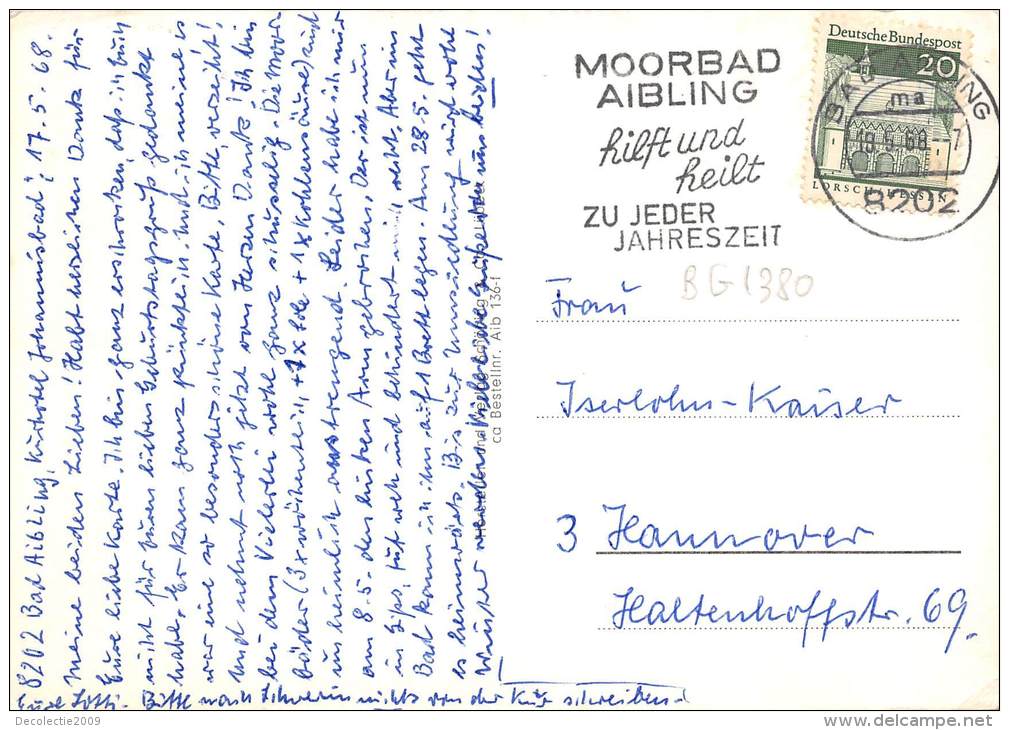 8202 Bad Aibling, Kurhotel Johannisbad, 17.5.68
Meine beiden Lieben! Habt herzlichen Dank für
Eure liebe Karte. Ich bin ganz erschrocken, daß ich Euch
nicht für Euren lieben Geburtstagsgruß gedankt
habe. Er kam ganz pünktlich. Und ich meine es
war eine so besonders schöne Karte. Bitte, verzeiht!
Und nehmt noch jetzt von Herzen Dank! Ich bin
bei dem Vielerlei wohl ganz schusselig. Die Moor-
bäder (3 x wöchentlich, + 1 x Sole + 1 x Kohlensäure) sind
unheimlich anstrengend. Leider habe ich mir
am 8.5. den linken Arm gebrochen. Der ist nun
in Gips, tut weh und behindert mich sehr. Aber im
Bad kann ich ihn aufs Brett legen. Am 28.5. geht
es heimwärts. Bis zur Umsiedlung wird wohl
Eure Lotti. Bitte nach Schwerin nichts von der Kur schreiben.
ca Bestellnr. Aib 136-f
MOORBAD
AIBLING
hilft und
heilt
ZU JEDER
JAHRESZEIT
Deutsche Bundespost
20
LORSCH/HESSEN
BAD AIBLING
ma
8202
BG1380
Frau
Iserlohn-Kaiser
3 Hannover
Haltenhoffstr. 69.
Decolectie2009
http://www.delcampe.net